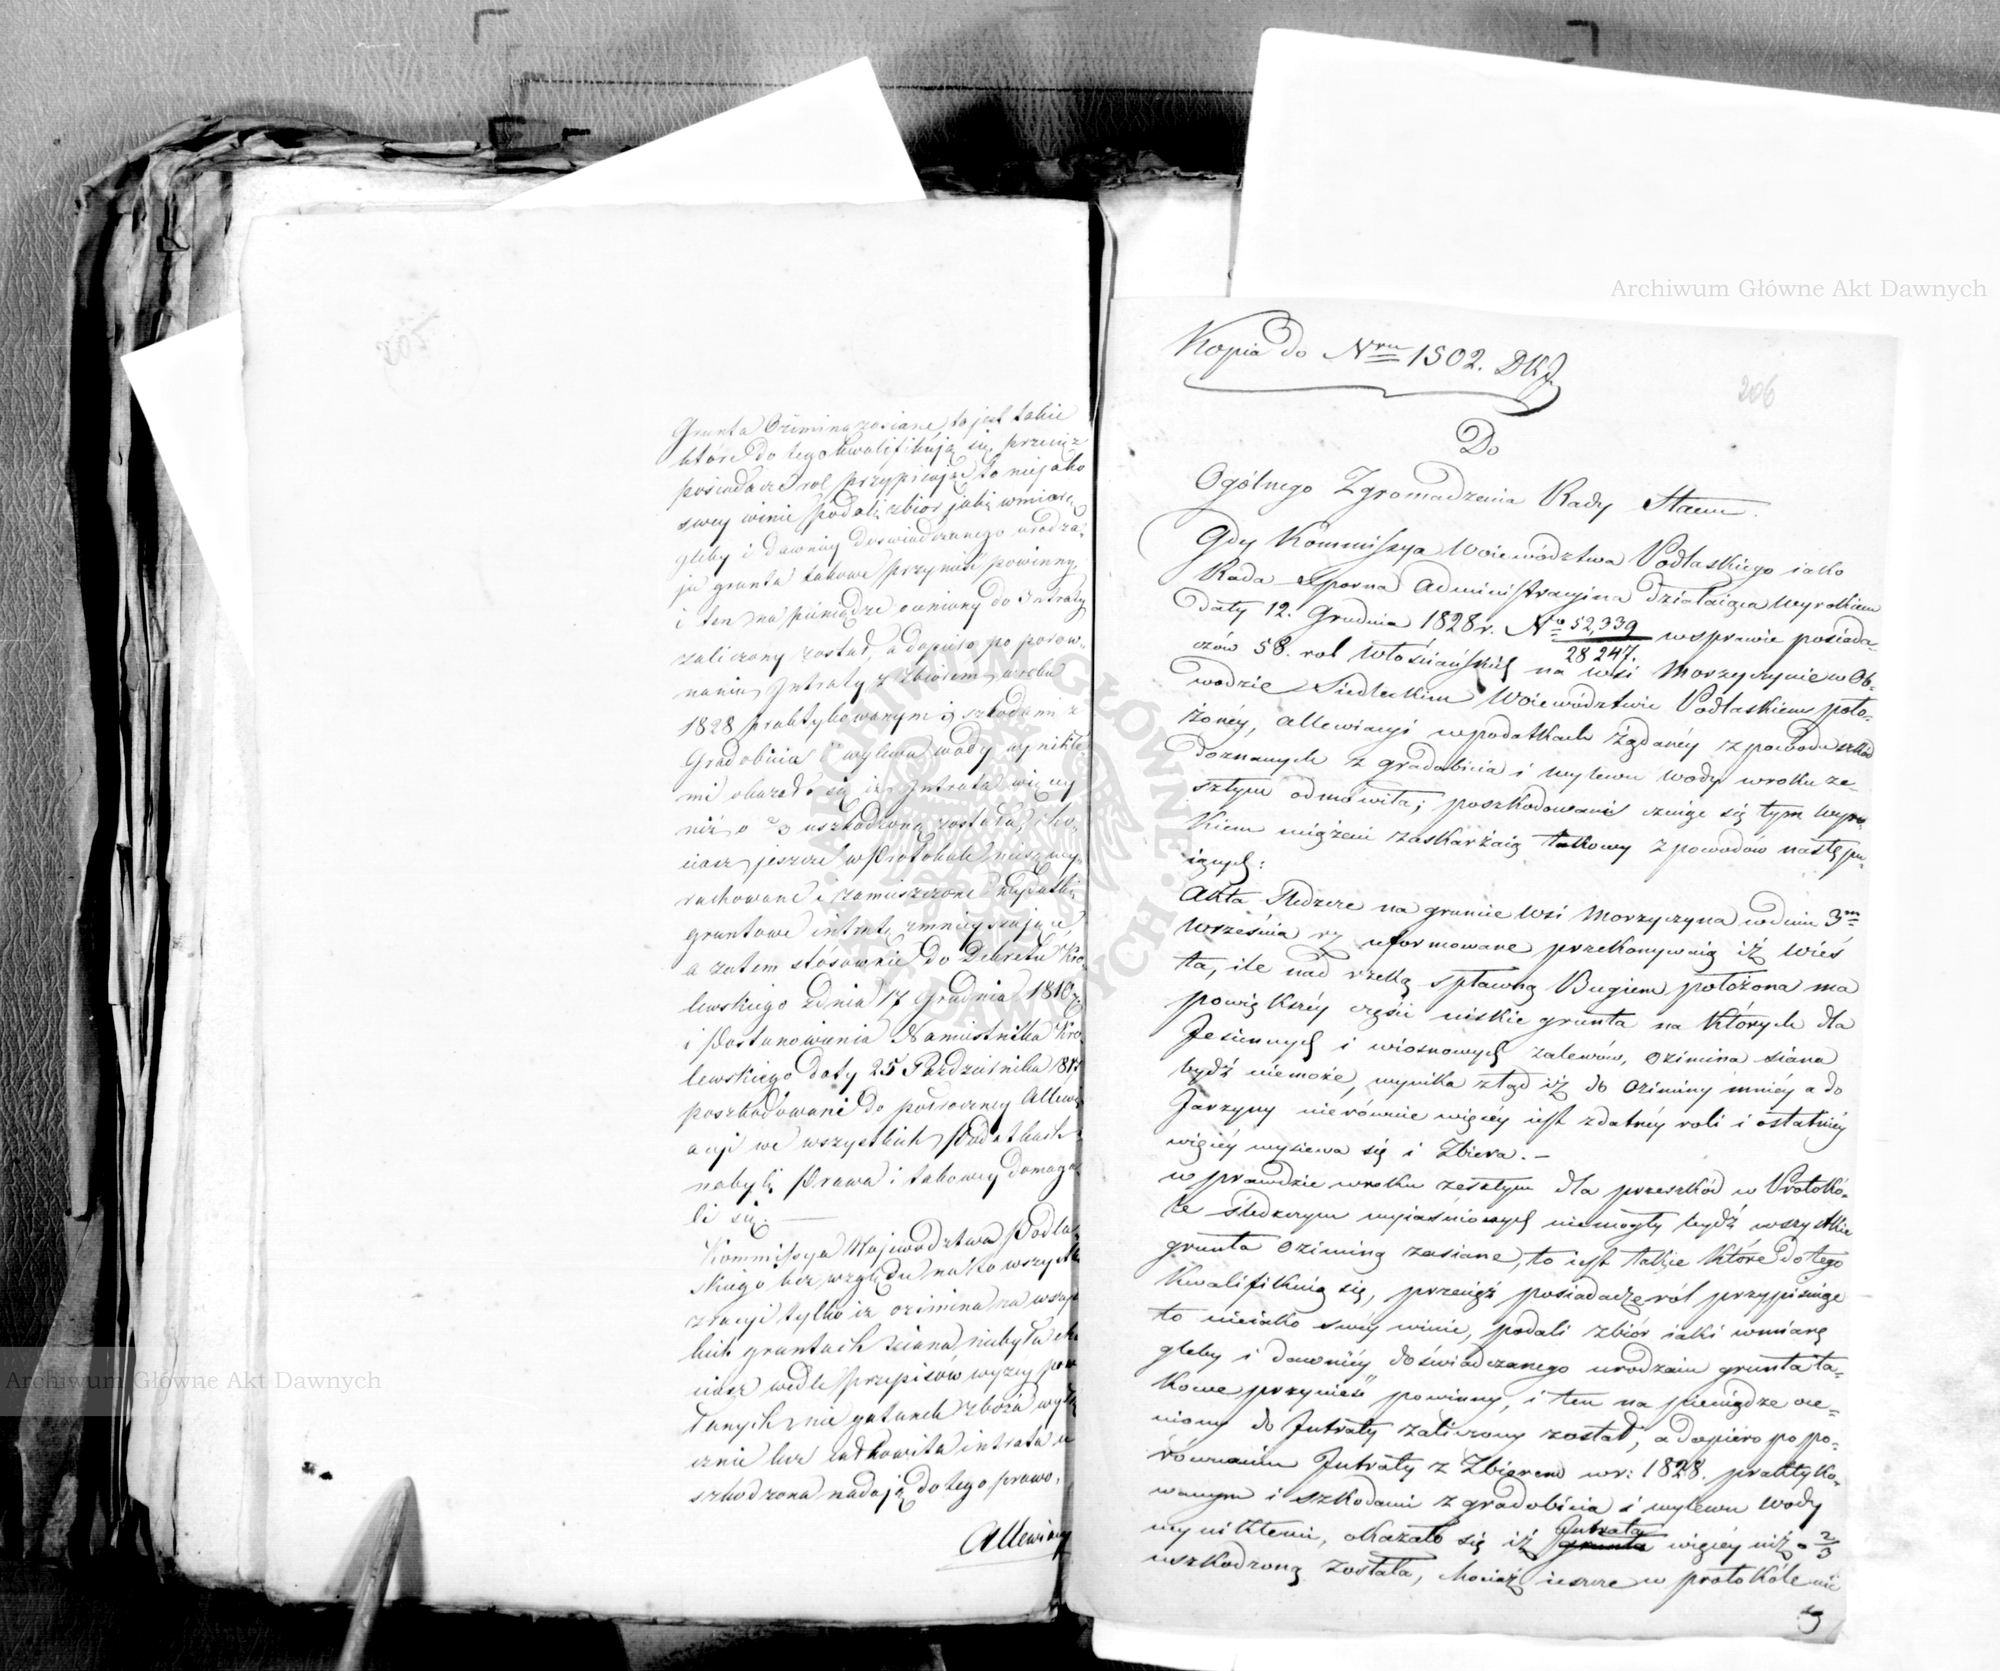 Grunta Oziminą zasiane, to jest takie
które do tego kwalifikują się, przecież
posiadacze rol przypisując to niejako
swey winie podali zbiór jaki w miarę
gleby i dawniey doświadczanego urodza-
ju grunta takowe przynieść powinny,
i ten na pieniądze oceniony do Intraty
zaliczony został, a dopiero po porów-
naniu Intraty z Zbiorem w roku
1828 praktykowanym i szkodami z
Gradobicia i wylewu wody wynikłe-
mi okazało się iż Intrata więcey
niż o 2/3 uszkodzoną została, cho-
ciasz jeszcze w Protokule niesą wy-
rachowane i zamieszczone wydatki
gruntowe intratę zmnieyszające
a zatem stósownie do Dekretu Kró-
lewskiego z dnia 17 Grudnia 1810 r.
i Postanowienia Namiestnika Kró-
lewskiego daty 25 Października 181
poszkodowani do półroczney Allewi-
acyi we wszystkich Podatkach
nabyli Prawa i takowey domaga-
li się. —
Kommissya Województwa Podla-
skiego bez względu na to wszystko
z racyi tylko iż ozimina na wszyst-
kich gruntach sianą niebyła cho-
ciasz wedle przepisów wyżey powo-
łanych nie gatunek zboża wyłą-
cznie lecz całkowita intrata u-
szkodzona nadają do tego prawo,
Allewiacyi
205
Archiwum Główne Akt Dawnych
Kopia do Nru 1502. DKJ
206
Do
Ogólnego Zgromadzenia Rady Stanu.
Gdy Kommissya Woiewództwa Podlaskiego iako
Rada Sporna Administracyina działaiąca Wyrokiem
daty 12. Grudnia 1828 r. No 52,339/28247. w sprawie posiada-
czów 58. rol Włościańskich na wsi Morzyczynie w Ob-
wodzie Siedleckim Woiewództwie Podlaskiem poło-
żoney, allewiacyi w podatkach żądaney z powodu szkód
doznanych z gradobicia i wylewu wody w roku ze-
sztym odmówiła; poszkodowani czuiąc się tym wyro-
kiem uciążeni zaskarżaią takowy z powodów nastęPu-
iących:
Akta Śledcze na gruncie wsi Morzyczyna w dniu 3m
Września r. z. uformowane przekonywaią iż wieś
ta, ile nad rzeką spławną Bugiem położona ma
powiększéy części niskie grunta na których dla
Jesiennych i wiosnowych zalewów, ozimina siana
bydź niemoże, wynika ztąd iż do oziminy mniéy a do
Jarzyny nierównie więcéy iest zdatnéy roli i ostatniéy
więcéy wysiewa się i zbiera. —
w prawdzie w roku zesztym dla przeszkód w Protokó-
le śledczym wyiaśnionych niemogły bydź wszystkie
grunta oziminą zasiane, to iest takie które do tego
kwalifikuią się, przecięż posiadacze ról przypisuiąc
to nieiako swey winie, podali zbiór iaki w miarę
gleby i dawniéy doświadczanego urodzaiu grunta ta-
kowe przynieść powinny, i ten na pieniądze oce-
niony do Intraty zaliczony został, a dopiero po po-
równaniu Intraty z Zbiorem w r: 1828. praktyko-
wanym i szkodami z gradobicia i wylewu wody
wynikłemi, okazało się iż grunta Intrata więcéy niż o 2/3
uszkodzoną została, chociaż ieszcze w protokóle nie
są
Archiwum Główne Akt Dawnych
ARCHIWUM GŁÓWNE AKT DAWNYCH